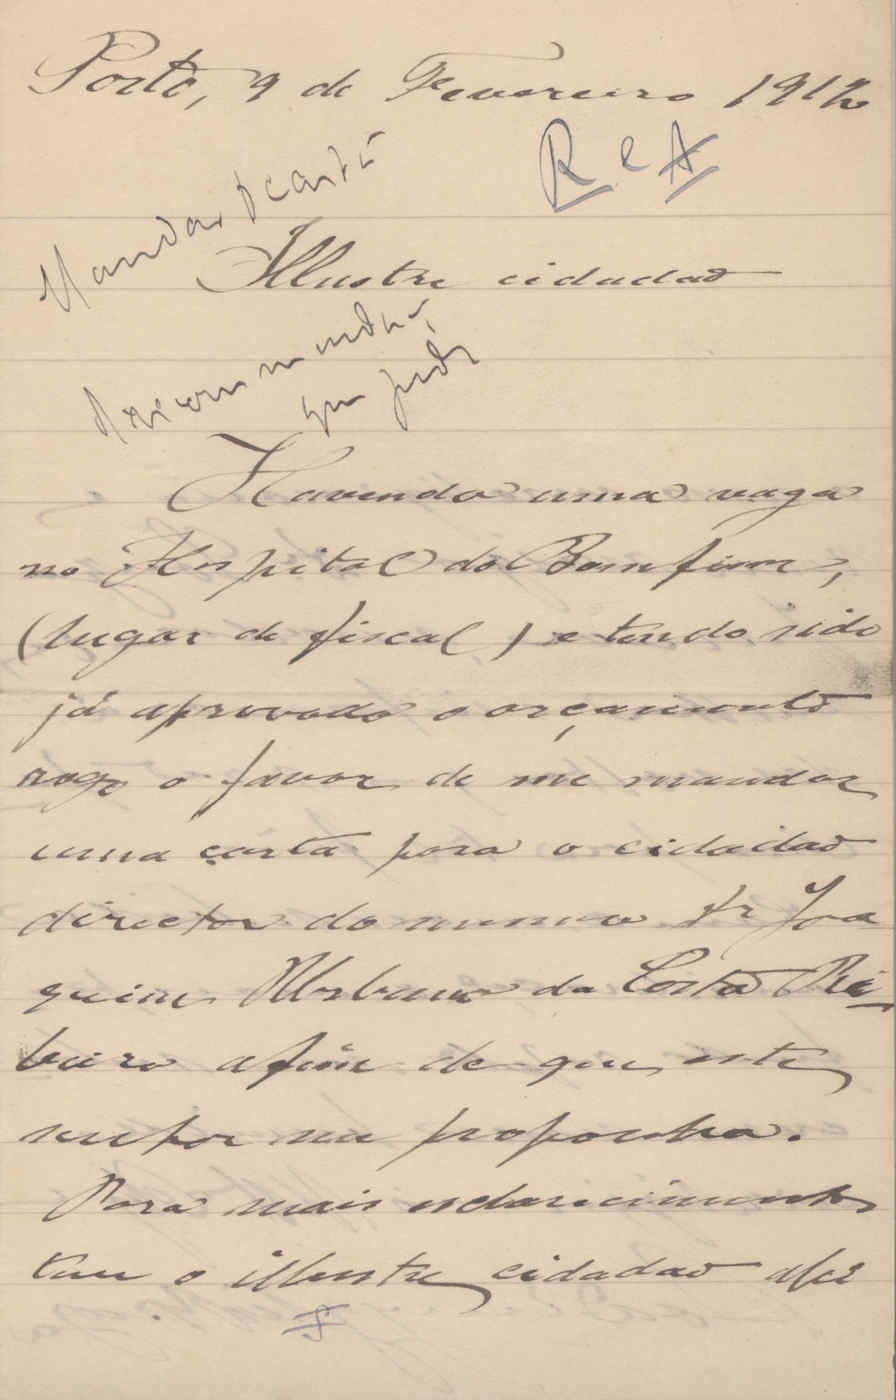 Porto, 9 de Fevereiro 1912
R e A
Mandar a carta
Illustre cidadao
Recommendar
que pede
Havendo uma vaga
no Hospital do Bomfim,
(lugar de fiscal) e tendo sido
já aprovado o orçamento
rogo o favor de me mandar
uma carta para o cidadao
director do mesmo Dr Joa
quim Urbano da Costa Ri-
beiro afim de que este
senhor me proponha.
Para mais esclarecimento
tem o illustre cidadao ahi